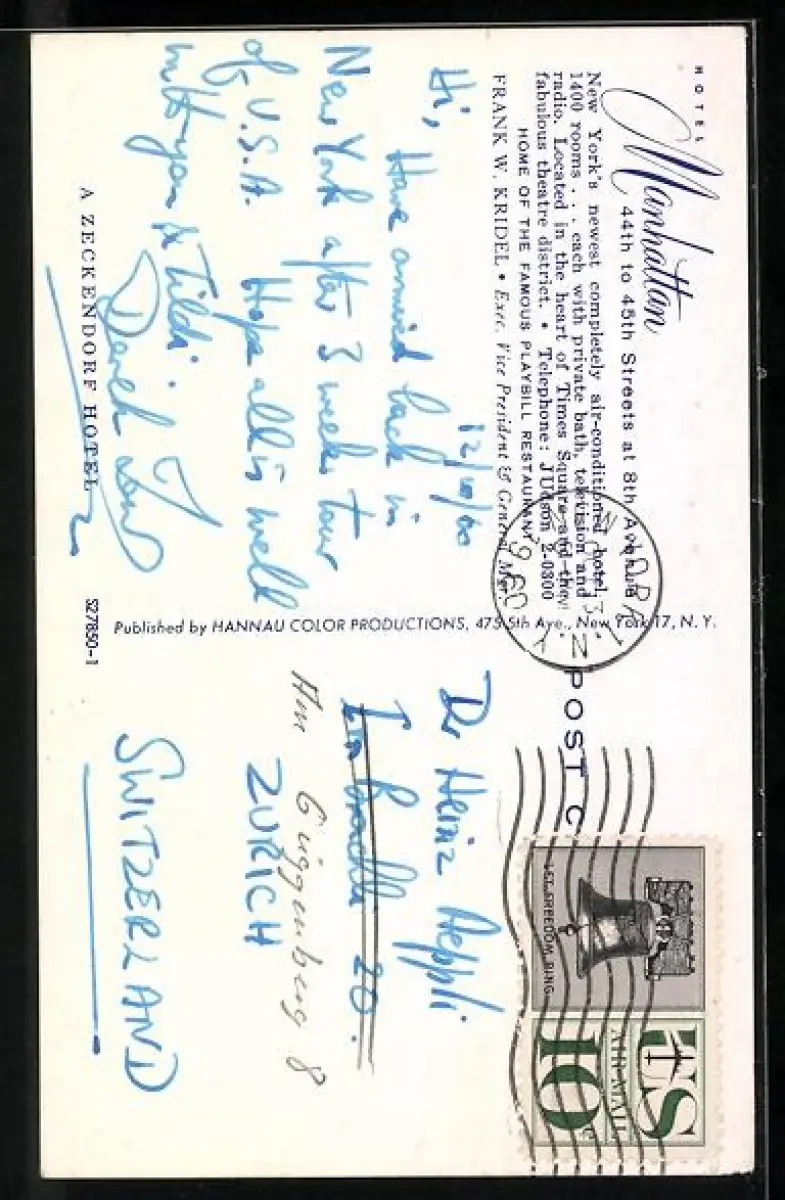 HOTEL
Manhattan
44th to 45th Streets at 8th Avenue
New York's newest completely air-conditioned hotel,
1400 rooms . . . each with private bath, television and
radio. Located in the heart of Times Square and the
fabulous theatre district. • Telephone: JUdson 2-0300
HOME OF THE FAMOUS PLAYBILL RESTAURANT
FRANK W. KRIDEL • Exec. Vice President & General Mgr.
12/10/60
Hi,
Have arrived back in
New York after 3 weeks tour
of U.S.A. Hope all is well
with you & Tildi.
Derek
A ZECKENDORF HOTEL
S27850-1
Published by HANNAU COLOR PRODUCTIONS, 475 5th Ave., New York 17, N. Y.
N.Y.
POST C
LET FREEDOM RING
US
AIR MAIL
10c
Dr Heinz Aeppli
20.
Guggenberg 8
ZURICH
SWITZERLAND